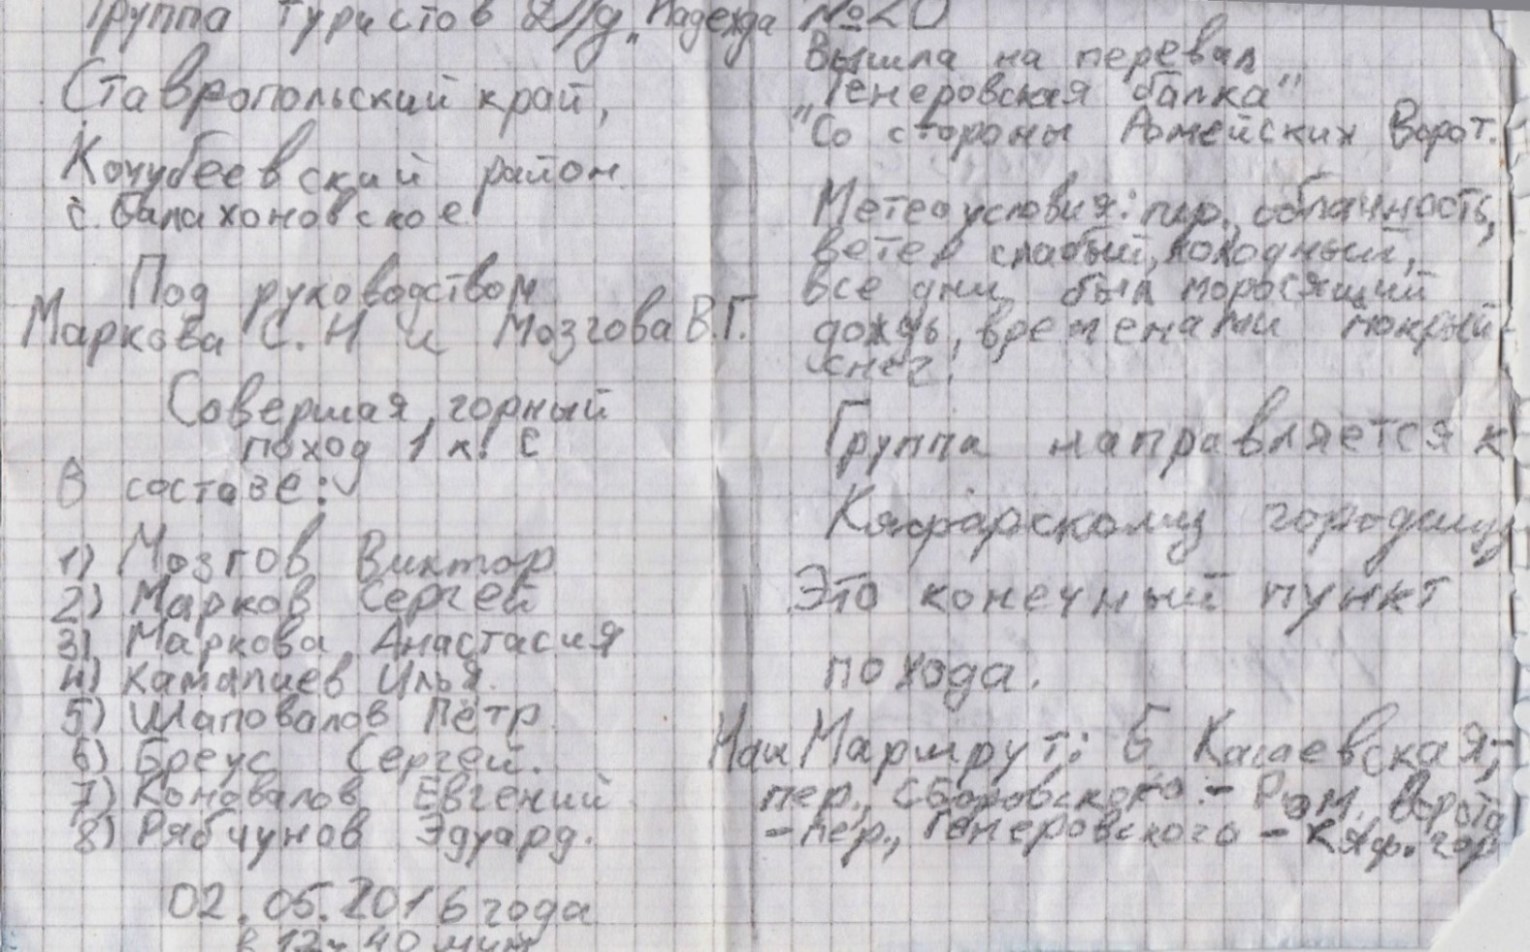 Группа туристов Д/д „Надежда №20
Ставропольский край,
Кочубеевский район
с. Балахоновское
Под руководством
Маркова С. Н и Мозгова В.Г.
Совершая горный
поход 1 к. с
В составе:
1) Мозгов Виктор
2) Марков Сергей
3) Маркова Анастасия
4) Камалиев Илья.
5) Шаповалов Пётр
6) Бреус Сергей.
7) Коновалов Евгений
8) Рябчунов Эдуард.
02.05.2016 года
в 12ч 40 мин
Вышла на перевал
„Генеровская балка"
Со стороны Ромейских Ворот.
Метеоусловия: пер., облачность,
ветер слабый, холодный,
все дни был моросящий
дождь, временами мокрый
снег!
Группа направляется к
Кяфарскому городищу
Это конечный пункт
похода.
Наш Маршрут: Б
пер., Сборовского - Ром., Ворота
- пер., Генеровского - Кяф. гор